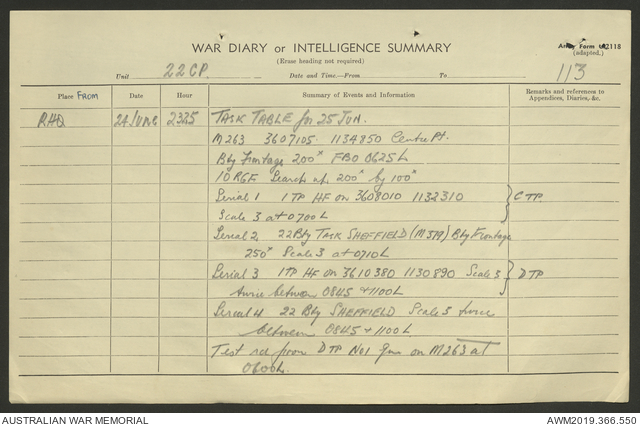 Army Form W2118
(adapted.)
WAR DIARY or INTELLIGENCE SUMMARY
(Erase heading not required)
113
Unit 22 CP. Date and Time.—From To
Place FROM Date Hour Summary of Events and Information Remarks and references to
Appendices, Diaries, &c.
RHQ 24/JUNE 2325 TASK TABLE for 25 JUN.
M263 3607105. 1134850 Centre Pt.
Bty Frontage 200ˣ FBO 0625L
10RGF Search up 200ˣ by 100ˣ
Serial 1 1TP HF on 3608010 1132310 C TP
Scale 3 at 0700L
Serial 2 22Bty TASK SHEFFIELD (M519) Bty Frontage
250ˣ Scale 3 at 0710L
Serial 3 1TP HF on 3610380 1130890 Scale 3 DTP
twice between 0845 + 1100L
Serial 4 22 Bty SHEFFIELD Scale 3 twice
between 0845 + 1100L
Test rd from DTP No1 gun on M263 at
0600L.
AUSTRALIAN WAR MEMORIAL AWM2019.366.550